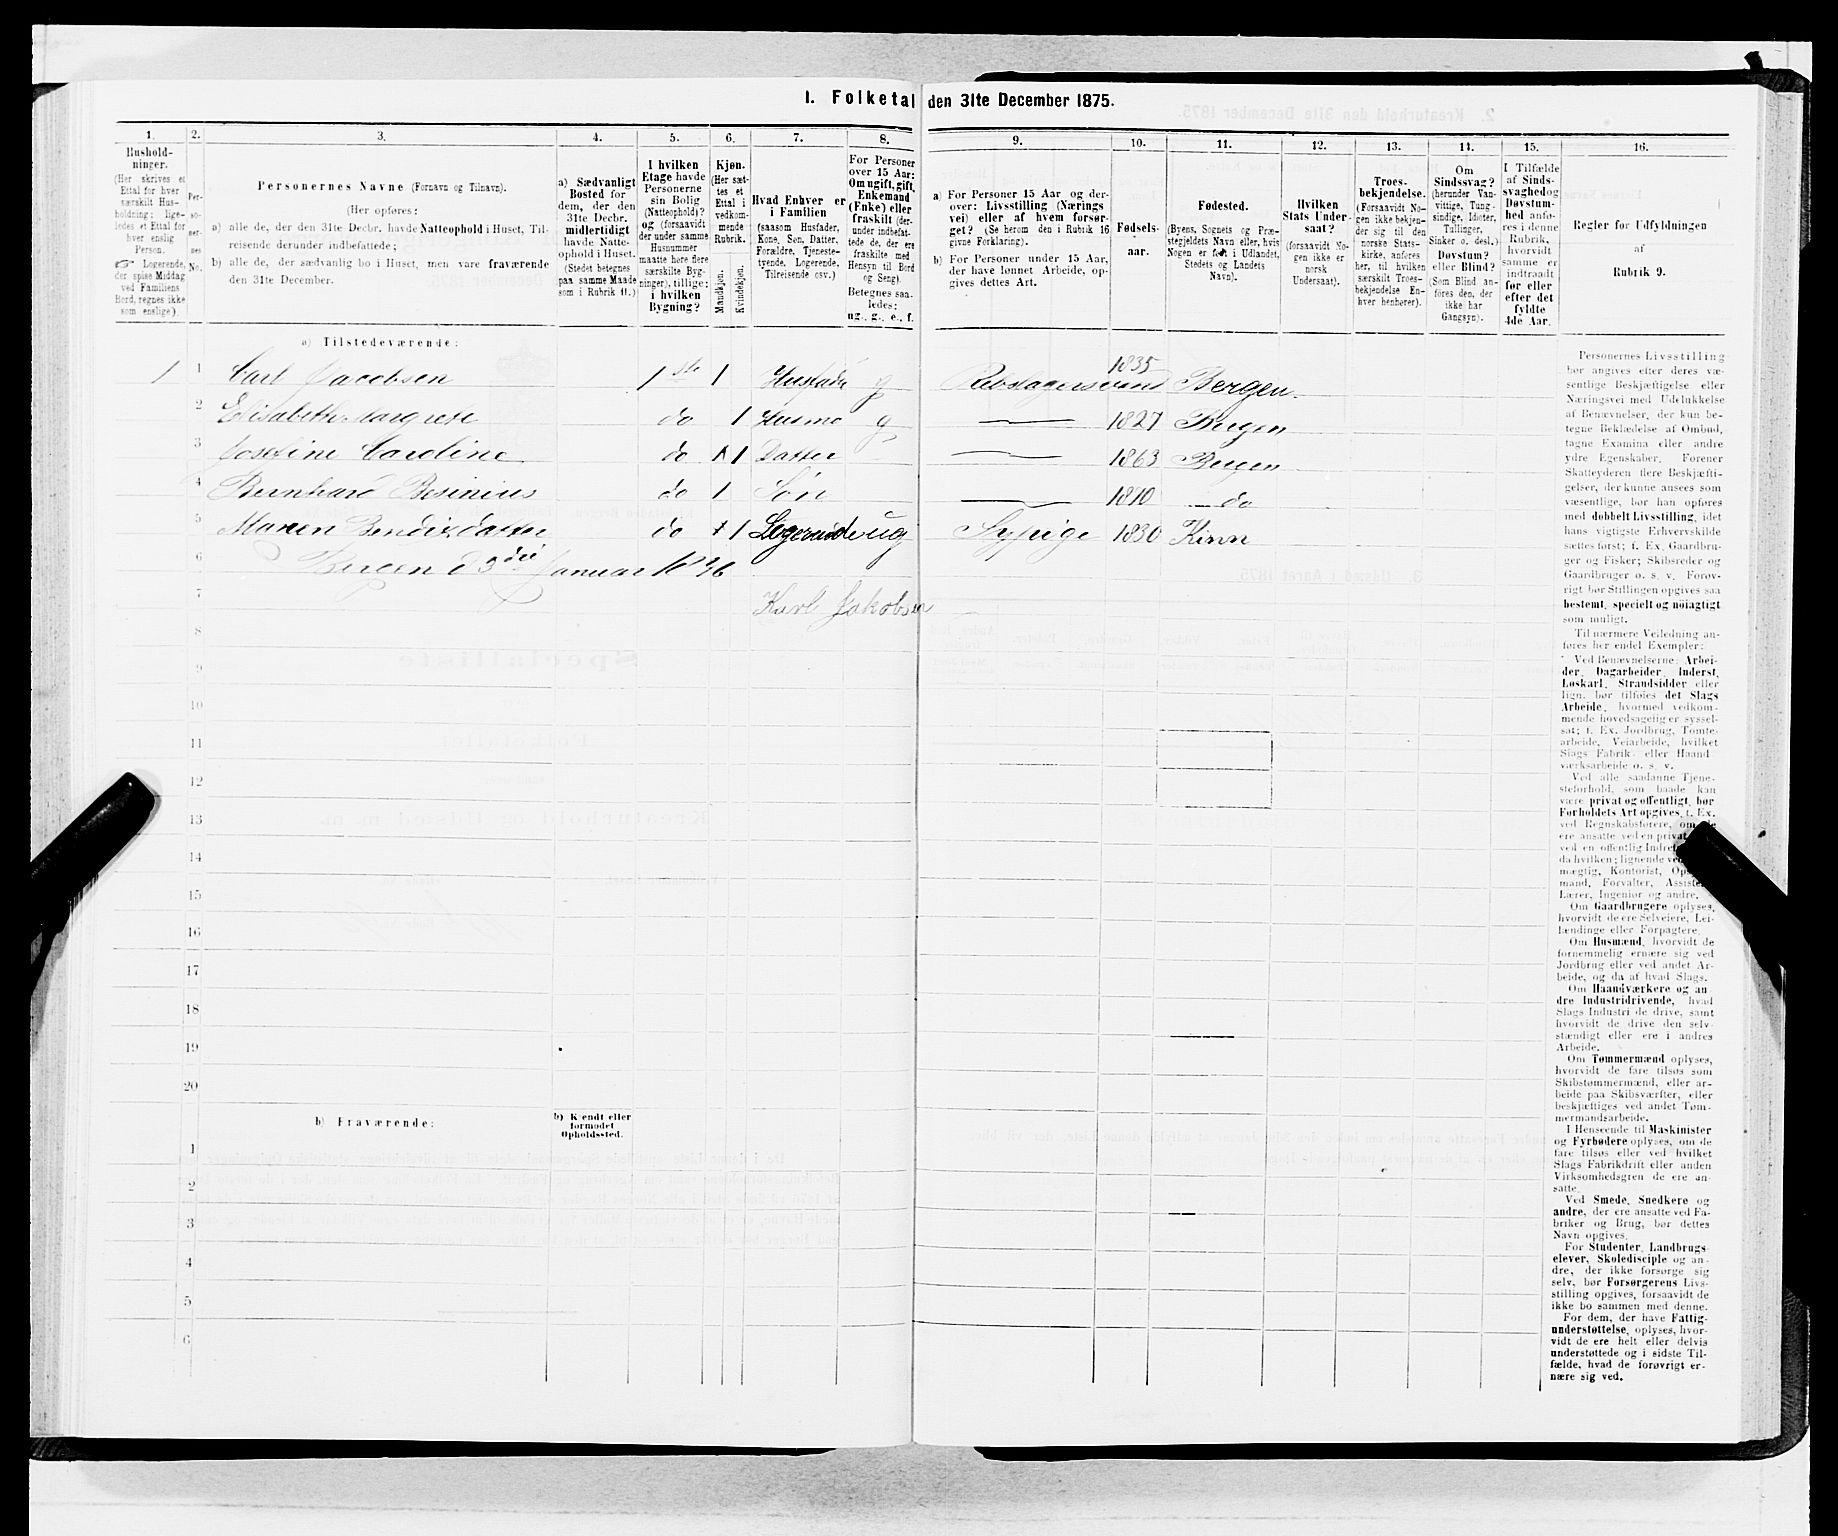 1. Folketal den 31te December 1875.
1. 2. 3. 4. 5. 6. 7. 8. 9. 10. 11. 12. 13. 14. 15. 16.
Husholdninger.
(Her skrives et
Ettal for hver
særskilt Husholdning;
ligeledes et Ettal for
hver enslig
Person.
☞ Logerende,
der spise Middag
ved Familiens
Bord, regnes ikke
som enslige).
Personernes No.
Personernes Navne (Fornavn og Tilnavn).
(Her opføres:
a) alle de, der den 31te Decbr. havde Natteophold i Huset, Tilreisende derunder indbefattede;
b) alle de, der sædvanlig bo i Huset, men vare fraværende
den 31te December.
a) Sædvanligt
Bosted for
dem, der den
31te Decbr.
midlertidigt
havde Natteophold i Huset.
(Stedet betegnes
paa samme Maade
som i Rubrik 11.)
I hvilken
Etage havde
Personerne
sin Bolig
(Natteophold)?
og (forsaavidt
der under samme
Husnummer
maatte høre flere
særskilte Bygninger), tillige:
i hvilken
Bygning?
Kjøn.
(Her sættes et
Ettal i
vedkommende
Rubrik.
Mandkjøn.
Kvindekjøn.
Hvad Enhver er
i Familien
(saasom Husfader,
Kone, Søn, Datter,
Forældre, Tjenestetyende, Logerende,
Tilreisende osv.)
For Personer
over 15 Aar:
Om ugift, gift,
Enkemand
(Enke) eller
fraskilt (derunder indbefattede de, der ere
fraskilte med
Hensyn til Bord
og Seng).
Betegnes saaledes:
ug., g., e., f.
a) For Personer 15 Aar og derover: Livsstilling (Næringsvei) eller af hvem forsørget? (Se herom den i Rubrik 16
givne Forklaring).
b) For Personer under 15 Aar,
der have lønnet Arbeide, opgives dettes Art.
Fødselsaar.
Fødested.
(Byens, Sognets og Præstegjeldets Navn eller, hvis
Nogen er født i Udlandet,
Stedets og Landets
Navn).
Hvilken
Stats Undersaat?
(forsaavidt Nogen ikke er
norsk
Undersaat).
Troesbekjendelse.
(Forsaavidt Nogen ikke bekjender sig til den
norske Statskirke, anføres
her, til hvilken
særskilt Troesbekjendelse Enhver henhører).
Om
Sindssvag?
(herunder Vanvittige, Tungsindige, Idioter,
Tullinger,
Sinker o. desl.)
Døvstum?
eller Blind?
(Som Blind anføres den, der
ikke har
Gangsyn).
I Tilfælde
af Sindssvaghed og
Døvstumhed anføres i denne
Rubrik,
hvorvidt
samme er
indtraadt
før eller
efter det
fyldte
4de Aar.
Regler for Udfyldningen
af
Rubrik 9.
a) Tilstedeværende:
1 1 Carl Jacobsen 1 ste 1 Husfader g Rebslagersvend 1835 Bergen
2 Elisabeth Margrete do 1 Husmo g — 1827 Bergen
3 Josefine Caroline do 1 Datter — 1863 Bergen
4 Bernhard Besinius do 1 Søn — 1870 do
5 Maren Bendixdatter do 1 Logerende ug Sypige 1830 Kinn
6 Bergen d 3die Januar 1876
7 Karl Jakobsen
8
9
10
11
12
13
14
15
16
17
18
19
20
b) Fraværende:
b) Kjendt eller
formodet
Opholdssted.
1
2
3
4
5
6
Personernes Livsstilling
bør angives efter deres væsentlige Beskjæftigelse eller
Næringsvei med Udelukkelse
af Benævnelser, der kun betegne Beklædelse af Ombud,
tagne Examina eller andre
ydre Egenskaber. Forener
Skatteyderen flere Beskjæftigelser, der kunne ansees som
væsentlige, bør han opføres
med dobbelt Livsstilling, idet
hans vigtigste Erhvervskilde
sættes først; f. Ex. Gaardbruger og Fisker; Skibsreder og
Gaardbruger o. s. v. Forøvrigt bør Stillingen opgives saa
bestemt, specielt og nöiagtigt
som muligt.
Til nærmere Veiledning anføres her endel Exempler:
Ved Benævnelserne: Arbeider, Dagarbeider, Inderst,
Løskarl, Strandsidder eller
lign. bør tilføies det Slags
Arbeide, hvormed vedkommende hovedsagelig er sysselsat; f. Ex. Jordbrug, Tømtearbeide, Veiarbeide, hvilket
Slags Fabrik- eller Haandværksarbeide o. s. v.
Ved alle saadanne Tjenesteforhold, som baade kan
være privat og offentligt, bør
Forholdets Art opgives, f. Ex.
ved Regnskabsførere, om de
ere ansatte ved en privat
ved en offentlig
da hvilken; lignende ved
mægtig, Kontorist,
mand, Forvalter,
Lærer, Ingeniør og andre.
Om Gaardbrugere oplyses,
hvorvidt de ere Selveiere, Leilændinge eller Forpagtere.
Om Husmænd, hvorvidt de
fornemmelig ernære sig ved
Jordbrug eller ved andet Arbeide, og da af hvad Slags.
Om Haandværkere og andre Industridrivende, hvad
Slags Industri de drive, samt
hvorvidt de drive den selvstændigt eller ere i andres
Arbeide.
Om Tømmermænd oplyses,
hvorvidt de fare tilsøs som
Skibstømmermænd, eller arbeide paa Skibsværfter, eller
beskjæftiges ved andet Tømmermandsarbeide.
I Henseende til Maskinister
og Fyrbødere oplyses, om de
fare tilsøs eller ved hvilket
Slags Fabrikdrift eller anden
Virksomhedsgren de ere ansatte.
Ved Smede, Snedkere og
andre, der ere ansatte ved Fabriker og Brug, bør dettes
Navn opgives.
For Studenter, Landbrugselever, Skoledisciple og andre, der ikke forsørge sig
selv, bør Forsørgerens Livsstilling opgives, forsaavidt de
ikke bo sammen med denne.
For dem, der have Fattigunderstøttelse, oplyses, hvorvidt de ere helt eller delvis
understøttede og i sidste Tilfælde, hvad de forøvrigt ernære sig ved.